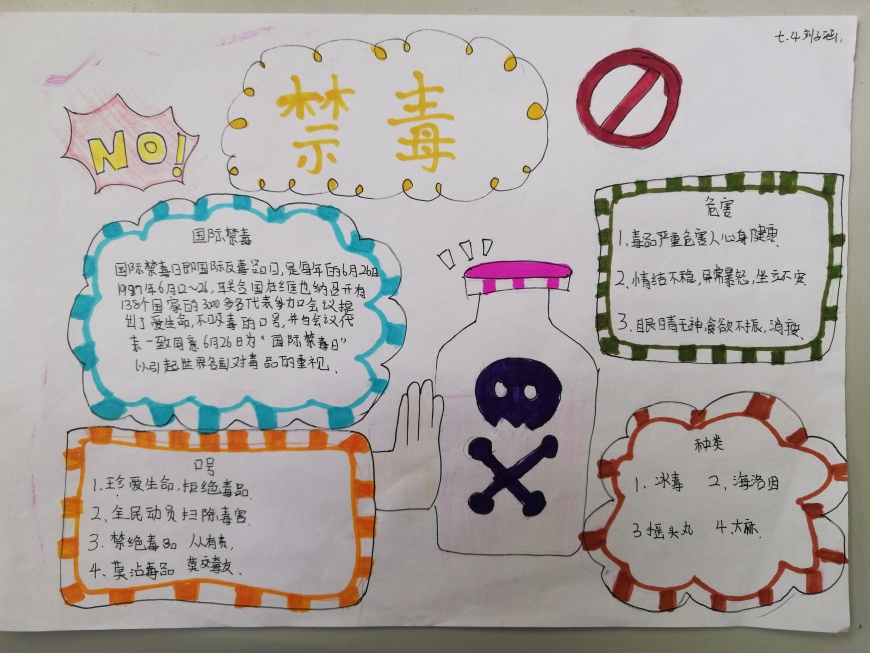 七.4 刘
禁毒
NO!
国际禁毒
国际禁毒日即国际反毒品日,是每年的6月26日
1987年6月12~26,联合国在维也纳召开有
138个国家的3000多名代表参加会议提
出了爱生命,不吸毒的口号,并与会议代
表一致同意6月26日为“国际禁毒日”
以引起世界各国对毒品的重视.
危害
1.毒品严重危害人心身健康.
2.情绪不稳,异常暴怒,坐立不安
3.眼睛无神,食欲不振,消瘦.
口号
1.珍爱生命,拒绝毒品.
2.全民动员扫除毒害.
3.禁绝毒品 人人有责.
4.莫沾毒品 莫交毒友.
种类
1.冰毒 2.海洛因
3摇头丸 4.大麻.